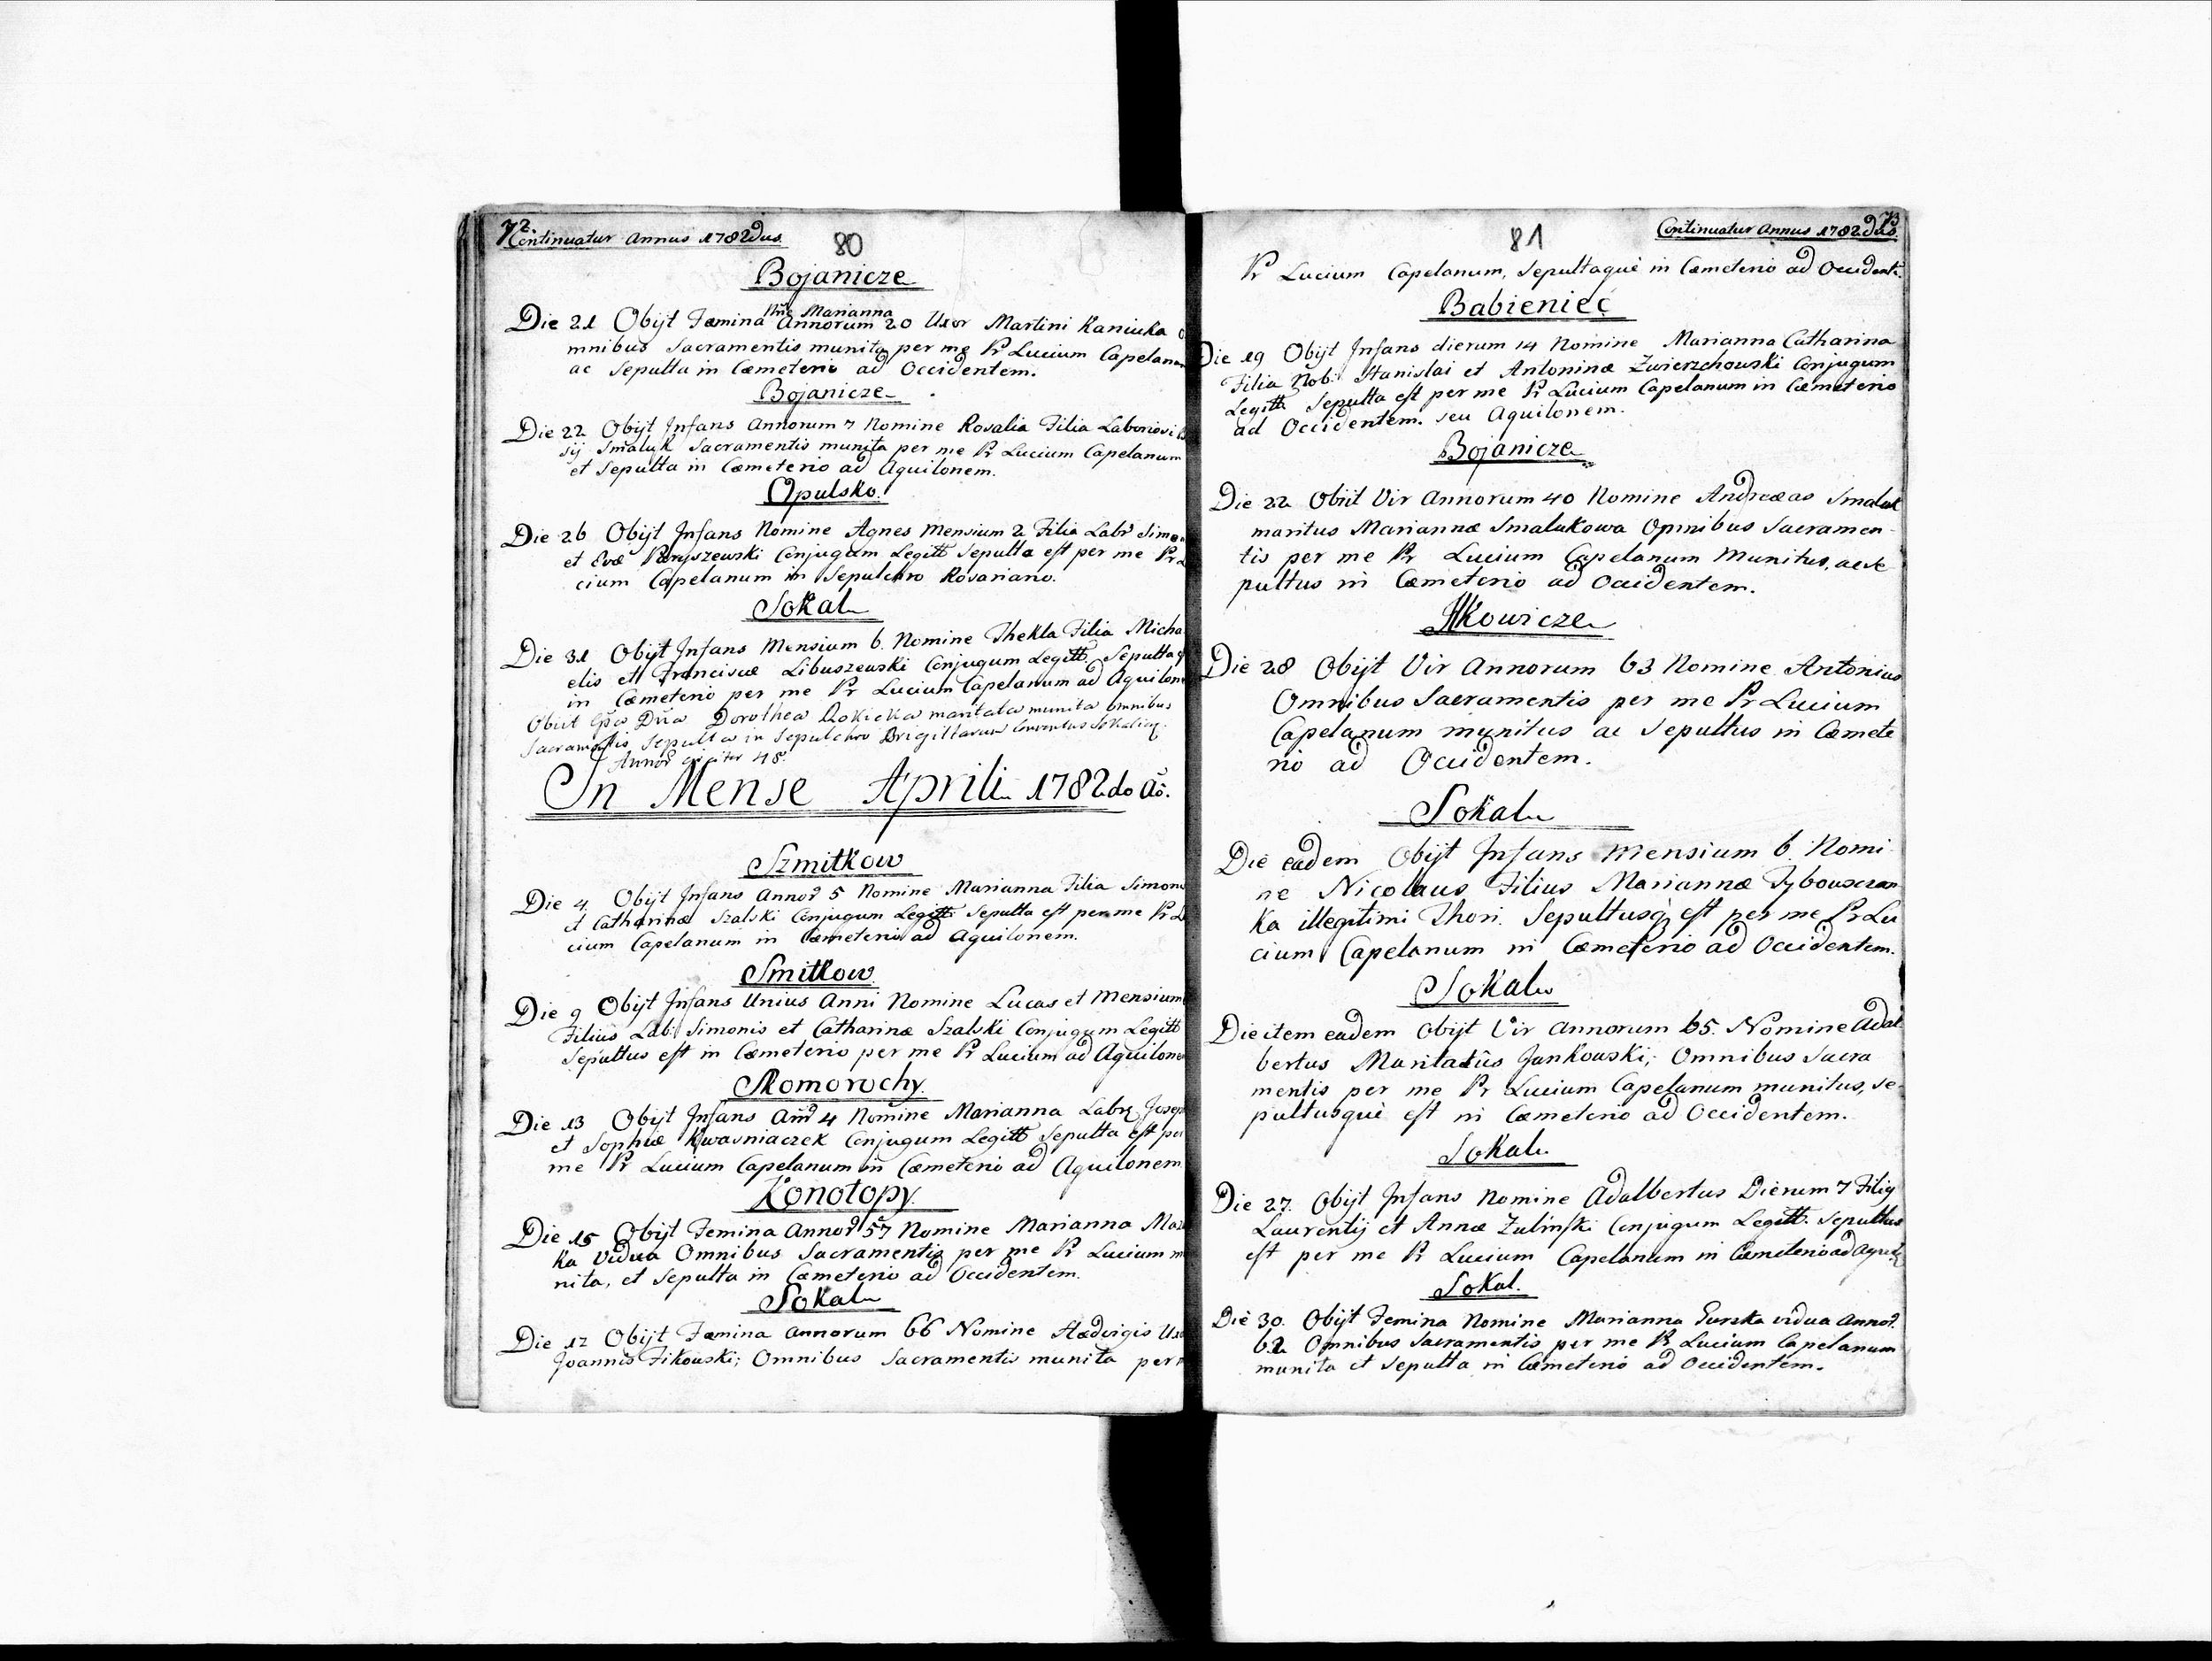 72.
Continuatur Annus 1782dus.
80
Bojanicze
Die 21 Obijt Fæmina Nne Marianna Annorum 20 Uxor Martini Kaniuka O
mnibus Sacramentis munita per me Pr Lucium Capelanum
ac Sepulta in Cæmeterio ad Occidentem.
Bojanicze
Die 22 Obijt Infans Annorum 7 Nomine Rosalia Filia Laboriosi
sij Smaluk Sacramentis munita per me Pr Lucium Capelanum
et Sepulta in Cæmeterio ad Aquilonem.
Opulsko.
Die 26 Obijt Infans Nomine Agnes Mensium 2 Filia Labr Simo
et Evæ Conjugum Legitt Sepulta est per me Pr
cium Capelanum in Sepulchro Rosariano.
Sokal
Die 31 Obijt Infans Mensium 6. Nomine Thekla Filia Micha
elis et Franciscæ Libuszewski Conjugum Legitt. Sepultaq
in Cæmeterio per me Pr Lucium Capelanum ad Aquilone
Obiit Gsa Dna Dorothea Rokicka maritata munita omnibus
Sacramentis Sepulta in Sepulchro Brigittarum Conventus Sokalien.
Annor circiter 48.
In Mense Aprili 1782do Ao.
Szmitkow
Die 4. Obijt Infans Annor 5 Nomine Marianna Filia Simoni
et Catharinæ Szalski Conjugum Legitt Sepulta est per me Pr Lu
cium Capelanum in Cæmeterio ad Aquilonem.
Smitkow.
Die 9 Obijt Infans Unius Anni Nomine Lucas et Mensium
Filius Lab: Simonis et Catharinæ Szalski Conjugum Legitt
Sepultus est in Cæmeterio per me Pr Lucium ad Aquilone
Skomorochy.
Die 13 Obijt Infans Annr 4 Nomine Marianna Labr Josep
et Sophiæ Kwasniaczek Conjugum Legitt Sepulta est per
me Pr Lucium Capelanum in Cæmeterio ad Aquilonem
Konotopy.
Die 15 Obijt Femina Annor 57 Nomine Marianna
ka Vidua Omnibus Sacramentis per me Pr Lucium mu
nita, et Sepulta in Cæmeterio ad Occidentem.
Sokal
Die 17 Obijt Fæmina Annorum 66 Nomine Hædvigis Uxo
Joannis Fikowski; Omnibus Sacramentis munita per m
73
Continuatur Annus 1782dus.
81
Pr Lucium Capelanum, Sepultaque in Cæmeterio ad Occident.
Babieniec
Die 19 Obijt Infans dierum 14 Nomine Marianna Catharina
Filia Nob: Stanislai et Antoninæ Zwierzchowski Conjugum
Legitt Sepulta est per me Pr Lucium Capelanum in Cæmeterio
ad Occidentem. seu Aquilonem.
Bojanicze
Die 22 Obiit Vir Annorum 40 Nomine Andreæas Smaluk
maritus Mariannæ Smalukowa Omnibus Sacramen-
tis per me Pr Lucium Capelanum Munitus, ac se
pultus in Cæmeterio ad Occidentem.
Ilkowicze
Die 28 Obijt Vir Annorum 63 Nomine Antonius
Omnibus Sacramentis per me Pr Lucium
Capelanum munitus ac Sepultus in Cæmete
rio ad Occidentem.
Sokal
Die eadem Obijt Infans Mensium 6. Nomi-
ne Nicolaus Filius Mariannæ
ka illegitimi Thori. Sepultusq est per me Pr Lu
cium Capelanum in Cæmeterio ad Occidentem.
Sokal
Die item eadem Obijt Vir Annorum 65. Nomine Adal
bertus Maritatus Jankowski; Omnibus Sacra
mentis per me Pr Lucium Capelanum munitus, se-
pultusque est in Cæmeterio ad Occidentem.
Sokal
Die 27. Obijt Infans Nomine Adalbertus Dierum 7 Filiq
Laurentij et Annæ Zulinski Conjugum Legitt. Sepultus
est per me Pr Lucium Capelanum in Cæmeterio ad
Sokal.
Die 30. Obijt Femina Nomine Marianna Gurska vidua Annor.
62. Omnibus Sacramentis per me Pr Lucium Capelanum
munita et Sepulta in Cæmeterio ad Occidentem.